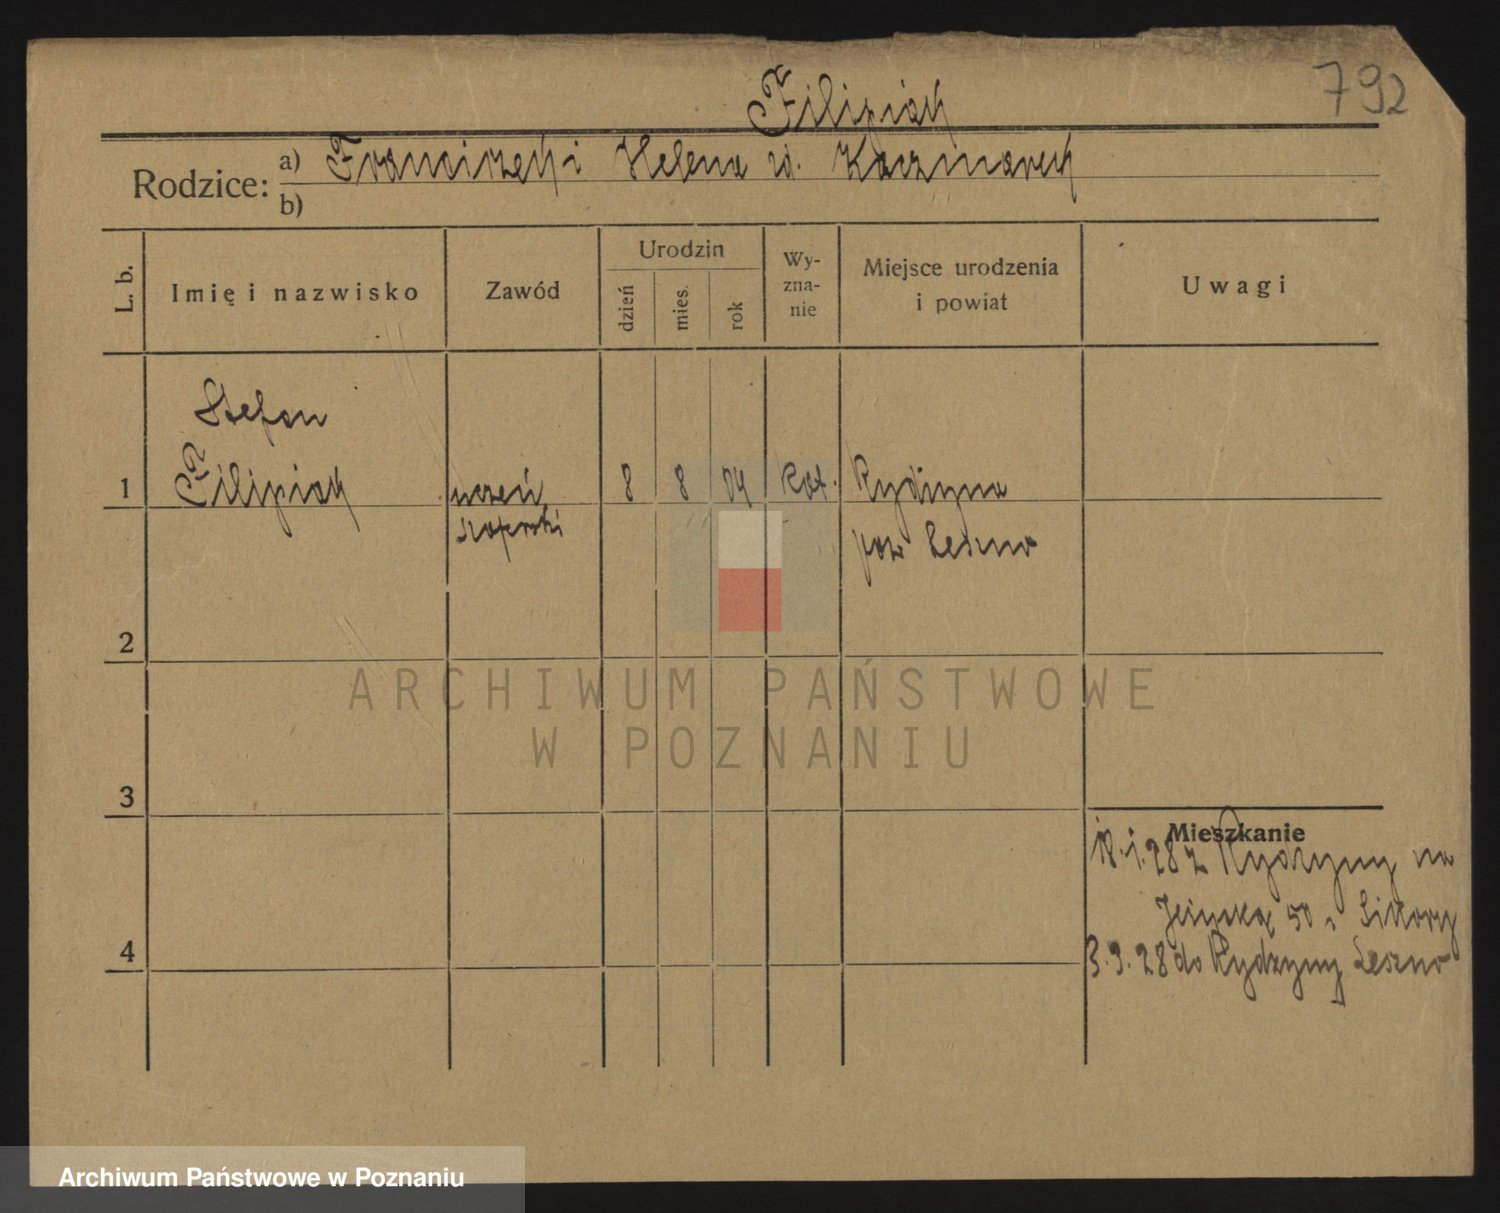 792
Filipiak
Rodzice: a) Franciszek i Helena zd. Kaczmarek
b)
L. b.
Imię i nazwisko
Zawód
Urodzin
dzień
mies.
rok
Wy-
zna-
nie
Miejsce urodzenia
i powiat
Uwagi
Stefan
1 Filipiak uczeń 8 8 04 kat. Rydzyna
pow Leszno
2
ARCHIWUM PAŃSTWOWE
W POZNANIU
3
Mieszkanie
28 z Rydzyny na
50 Sikory
4
3.9.28 do Rydzyny Leszno
Archiwum Państwowe w Poznaniu